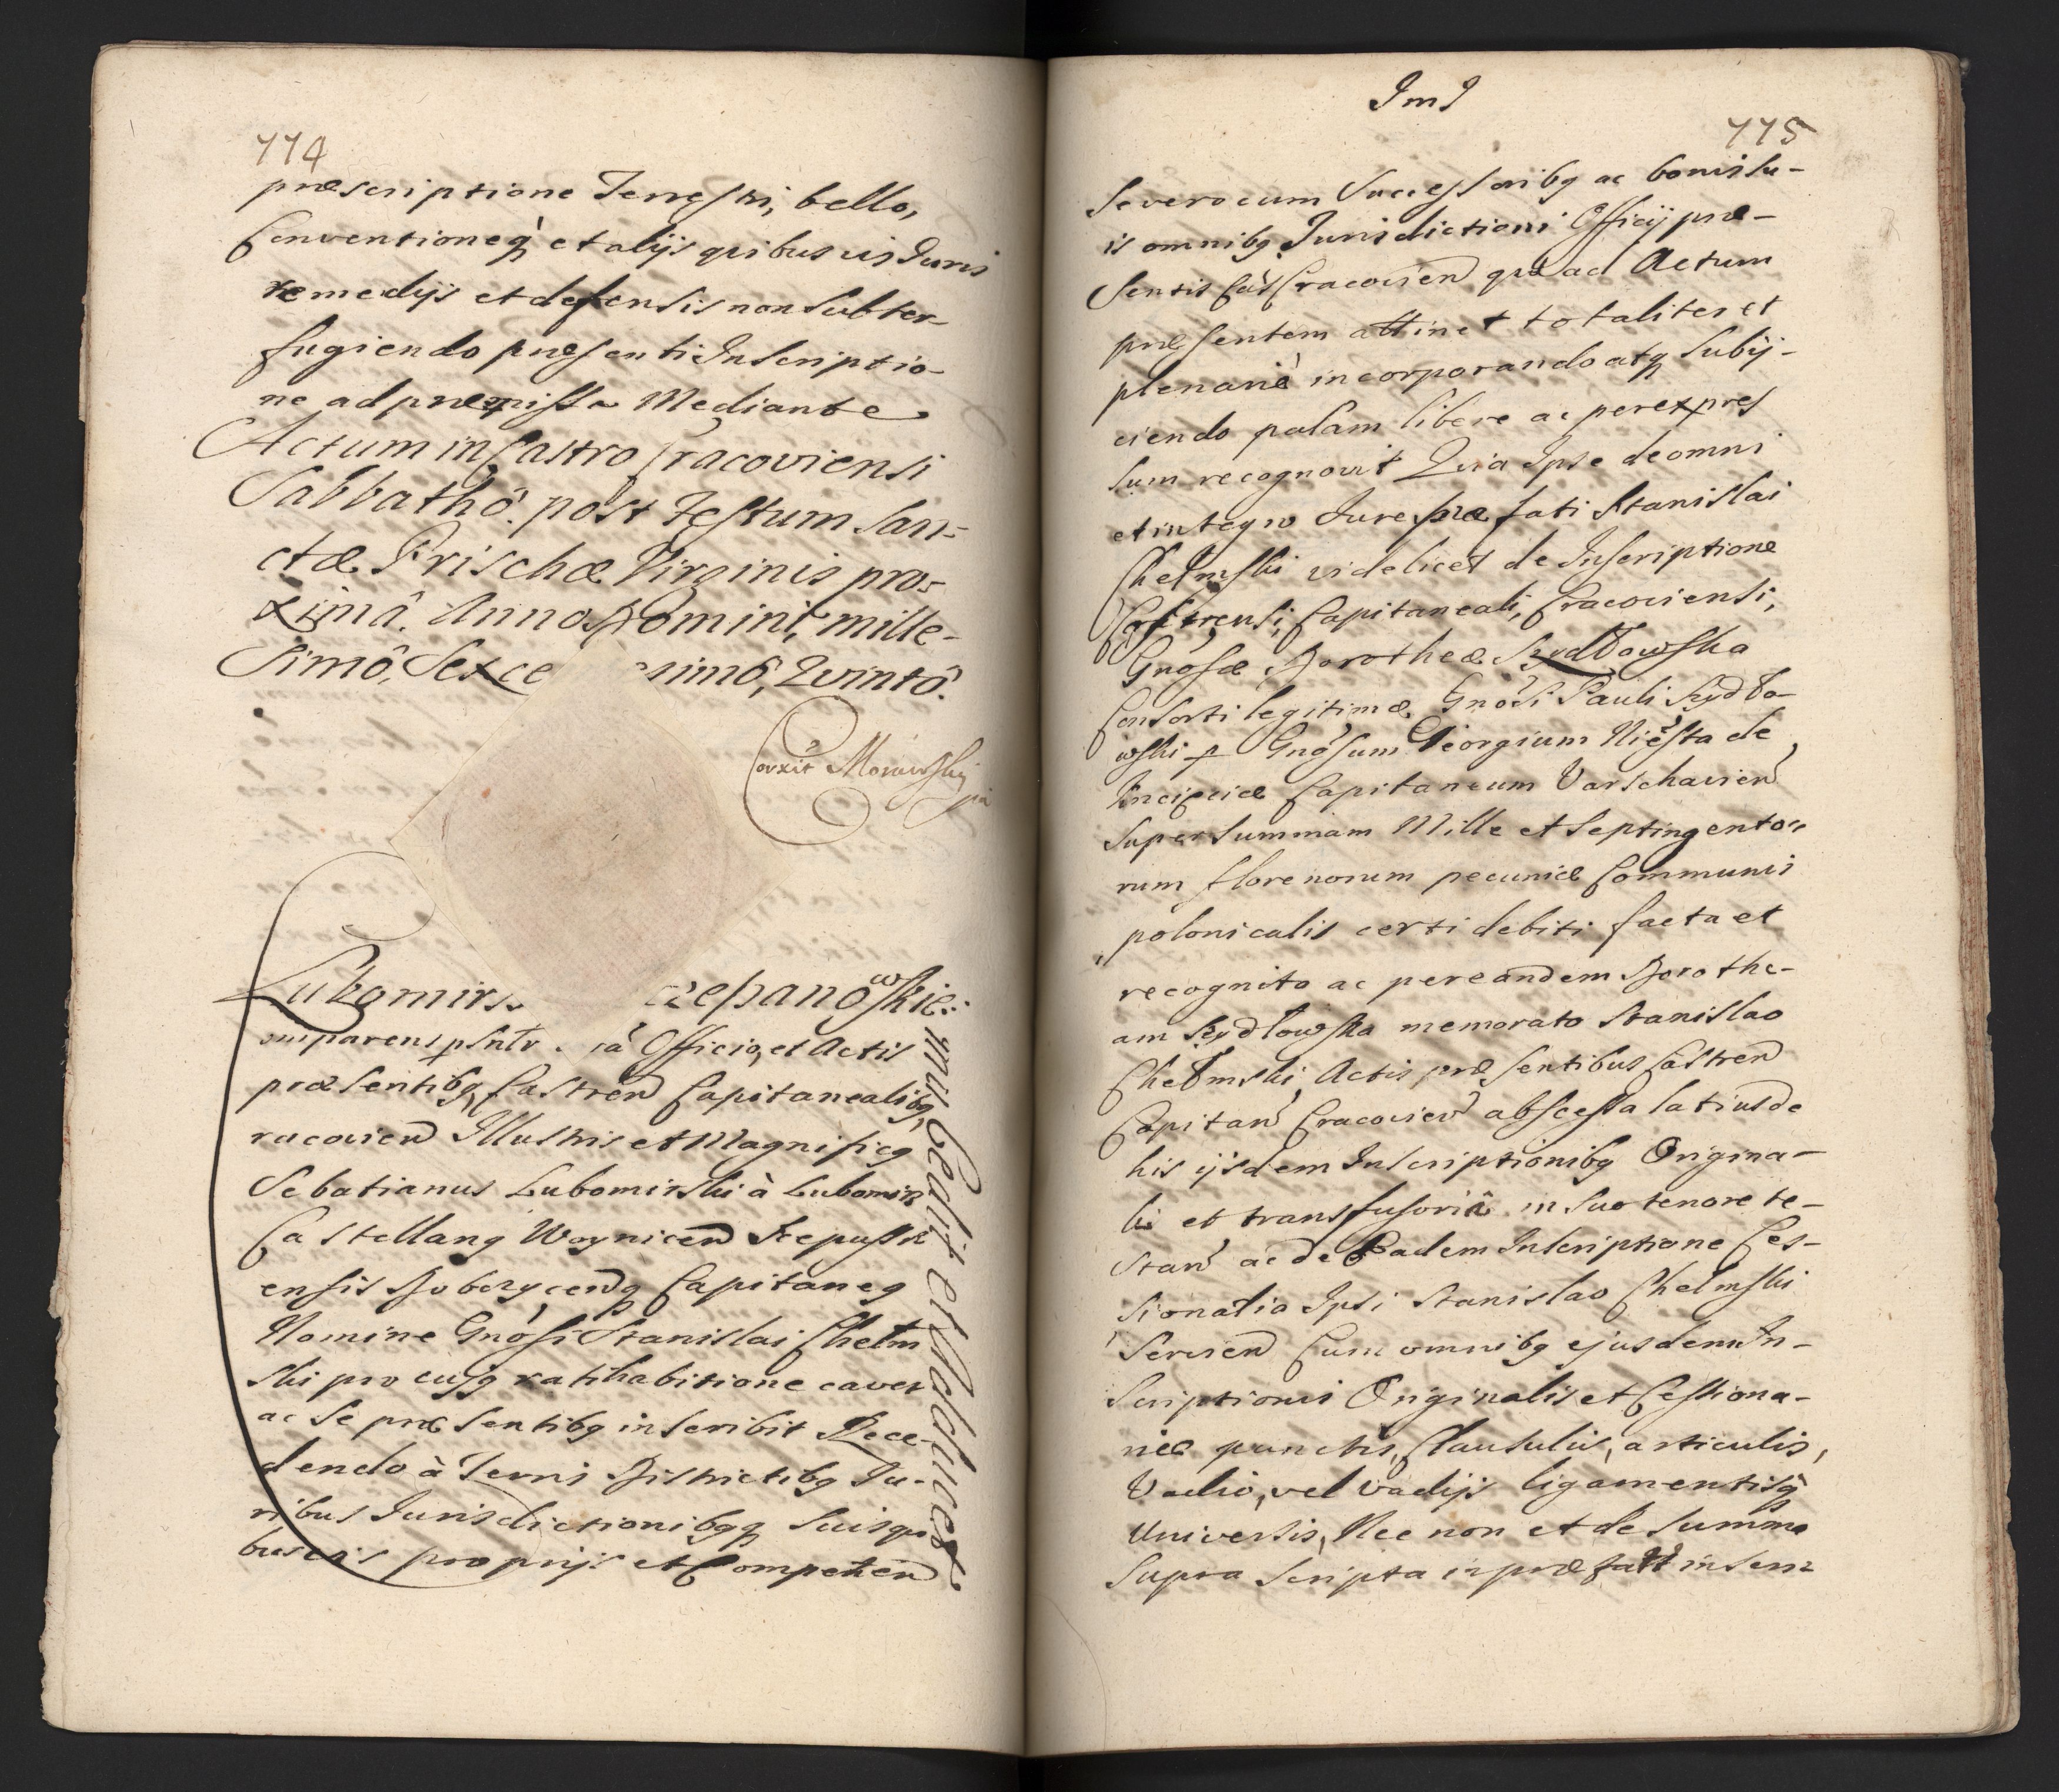 774
præscriptione Terrestri, bello,
Conventioneq́ et alijs quibusuis Juris
remedijs et defensis non subter-
fugiendo præsenti Inscriptio-
ne ad præmissa Mediante
Actum in Castro Cracoviensi
Sabbathô post Festum San-
ctæ Prischæ Virginis pro-
ximâ. Anno Domini, mille-
simô, Sexce simô, Quintô.
Coxit Morawskij
Lubomirs zepanowskie:
mu Cedit et Abducet
omparens psntr à Officio, et Actis
præsentibq Castren Capitanealibq
racovien Illustris et Magnificq
Sebatianus Lubomirski à Lubomirz
Castellanq Woynicen Scepussi
ensis Dobczycenq Capitaneq
Nomine Gnosi Stanislai Chelm
ski pro cujq ratihabitione cavet
ac Se præsentibq inscribit Rece-
dendo à Terris Districtibq Ju-
ribus Jurisdictionibqq suis qui
busuis proprijs et Competen
JmJ
775
Se vero cum Successoribq ac bonis su-
is omnibq Jurisdictioni Officij præ-
sentis Cās Cracovien quo ad Actum
præsentem attinet totaliter et
plenariè incorporando atq subij-
ciendo palam libere ac per expres
sum recognovit Quia Ipse de omni
et integro Jure præfati Stanislai
Chelmski videlicet de Inscriptione
Castrensi, Capitaneali, Cracoviensi,
Gnosæ Dorotheæ Szydłowska
Consorti legitimæ Gnosi Pauli Szydło-
wski p Gnosum Georgium Niesta de
Capitaneum Varschavien
super summam Mille et septingento-
rum florenorum pecuniæ Communis
polonicalis certi debiti facta et
recognito ac per eandem Dorothe-
am Szydłowska memorato Stanislao
Chełmski Actis præsentibus Castren
Capitan Cracovien abscessa latius de
his ijsdem Inscriptionibq Origina-
li et transfusoriâ in suo tenore te-
stan ac de Eadem Inscriptione Ces-
sionatia Ipsi Stanislao Chelmski
Servien Cum omnibq ejusdem In-
scriptionis Originalis et Cessiona-
riæ punctis, Clausulis, articulis,
Vadio, vel vadijs ligamentisq́
Universis, Nec non et de Summa
Supra scripta in præfatt inscri-